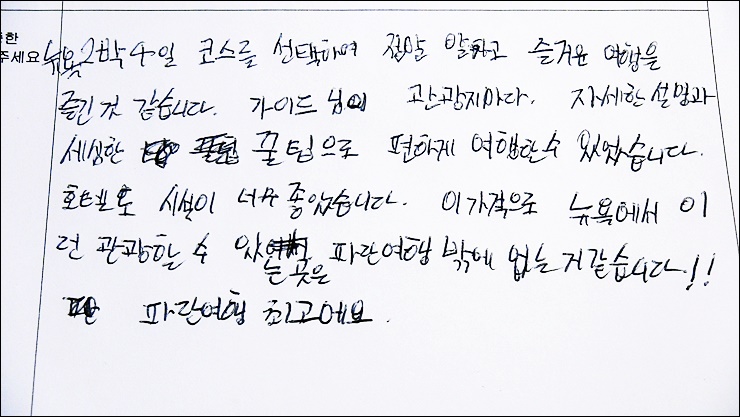 한
주세요
뉴욕 2박4일 코스를 선택하여 정말 알차고 즐거운 여행을
즐긴것 같습니다. 가이드님의 관광지마다. 자세한 설명과
세심한 꿀팁으로 편하게 여행할수 있었습니다.
호텔도 시설이 너무 좋았습니다. 이가격으로 뉴욕에서 이
런 관광할 수 있는 곳은 파란여행 밖에 없는 거같습니다!!
파란여행 최고에요.